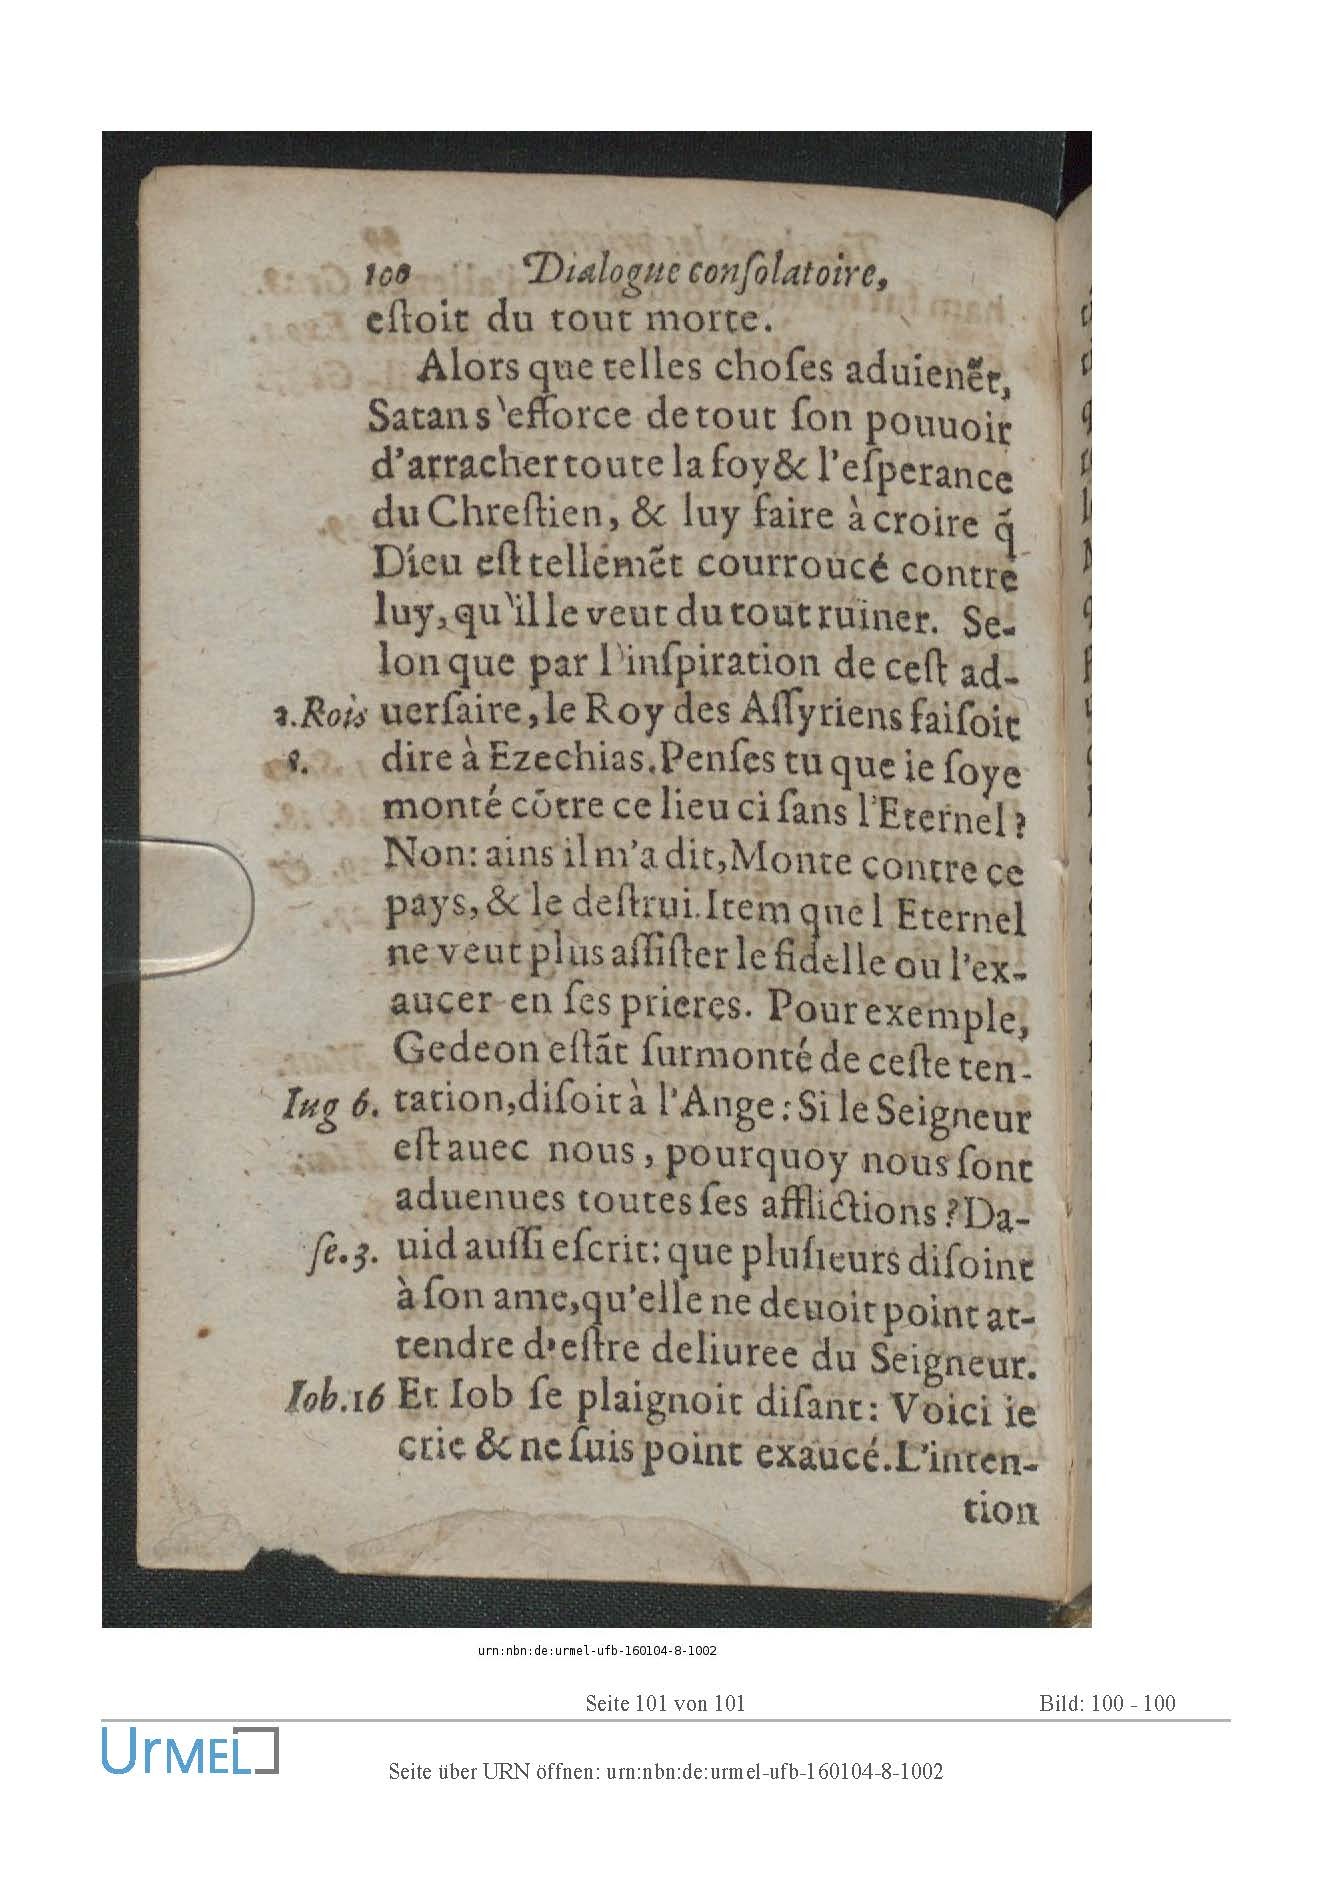 100 Dialogue conſolatoire,
eſtoit du tout morte.
Alors que telles choſes aduienẽt,
Satan s'efforce de tout ſon pouuoir
d'arracher toute la foy & l'eſperance
du Chreſtien, & luy faire à croire q̃
Dieu eſt tellemẽt courroucé contre
luy, qu'il le veut du tout ruiner. Se-
lon que par l'inſpiration de ceſt ad-
2.Rois uerſaire, le Roy des Aſſyriens faiſoit
8. dire à Ezechias. Penſes tu que ie ſoye
monté cõtre ce lieu ci ſans l'Eternel?
Non: ains il m'a dit, Monte contre ce
pays, & le deſtrui. Item que l Eternel
ne veut plus aſſiſter le fidelle ou l'ex-
aucer en ſes prieres. Pour exemple,
Gedeon eſtãt ſurmonté de ceſte ten-
Iug 6. tation, diſoit à l'Ange: Si le Seigneur
eſt auec nous, pourquoy nous ſont
aduenues toutes ſes afflictions? Da-
ſe.3. uid auſſi eſcrit: que pluſieurs diſoint
à ſon ame, qu'elle ne deuoit point at-
tendre d'eſtre deliuree du Seigneur.
Iob.16 Et Iob ſe plaignoit diſant: Voici ie
crie & ne ſuis point exaucé. L'inten-
tion
urn:nbn:de:urmel-ufb-160104-8-1002
Seite 101 von 101 Bild: 100 - 100
UrMEL
Seite über URN öffnen: urn:nbn:de:urmel-ufb-160104-8-1002